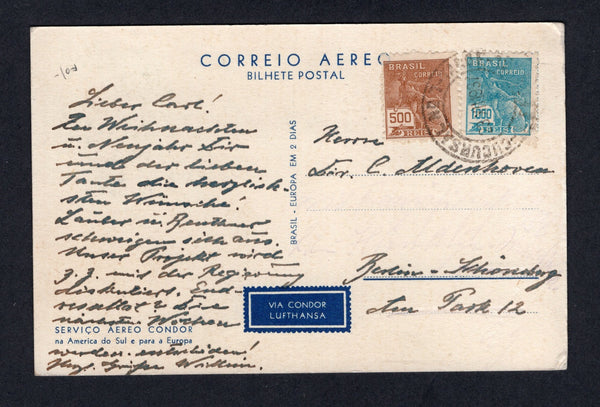 CORREIO AEREO
BILHETE POSTAL
Lieber Carl!
Zu Weihnachten
u. Neujahr Dir
und der lieben
Tante die herzlich-
sten Wünsche!
schweigen sich aus.
Unser Projekt wird
z.Z. mit der Regierung
diskutiert.
nächsten Wochen
SERVIÇO AEREO CONDOR
na America do Sul e para a Europa
werden entscheiden!
Herzl. Grüße
BRASIL - EUROPA EM 2 DIAS
BRASIL
CORREIO
500
REIS
BRASIL
CORREIO
1000
REIS
Herrn
Dir. C. Aldenhoven
Berlin-Schöneberg
Am Park 12
VIA CONDOR
LUFTHANSA